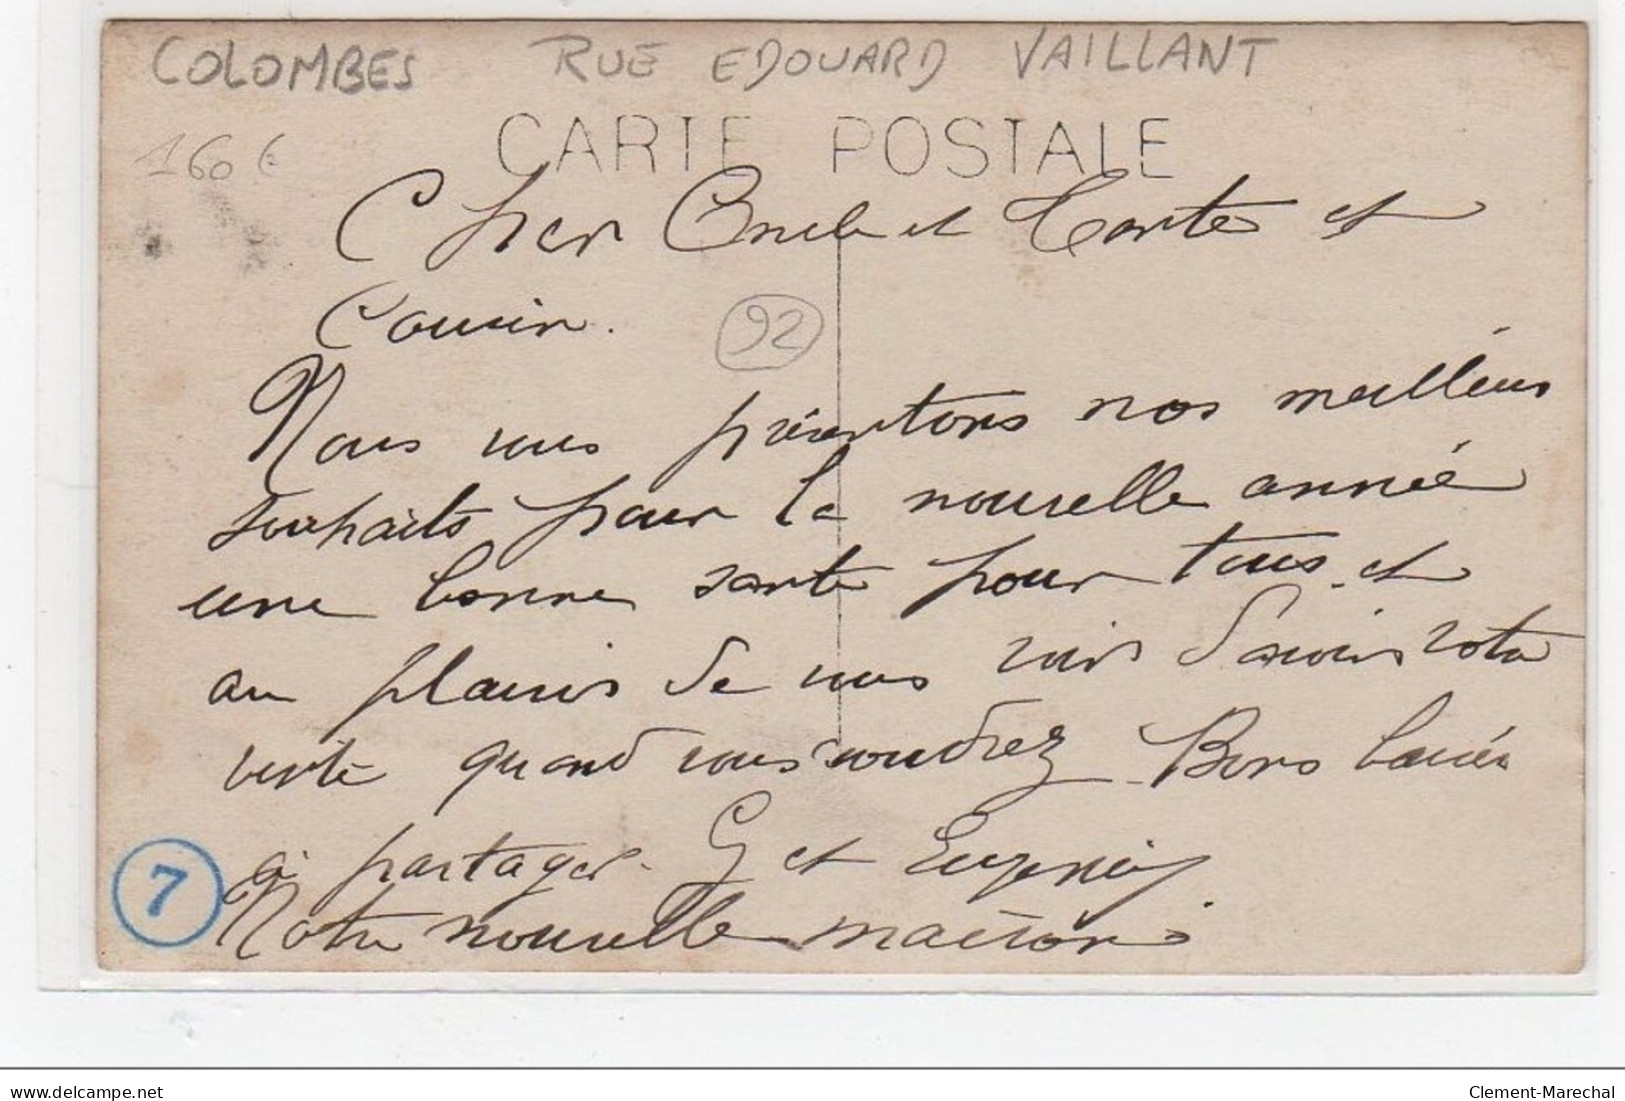 COLOMBES RUE EDOUARD VAILLANT
160 €
CARTE POSTALE
Cher Oncle et Tante et
Cousin.
92
Nous vous présentons nos meilleurs
souhaits pour la nouvelle année
une bonne santé pour tous et
au plaisir de vous voir d'avoir votre
visite quand vous voudrez Bons baisers
à partager. G et Eugénie
7
Notre nouvelle maison
delcampe.net
Clement-Marechal